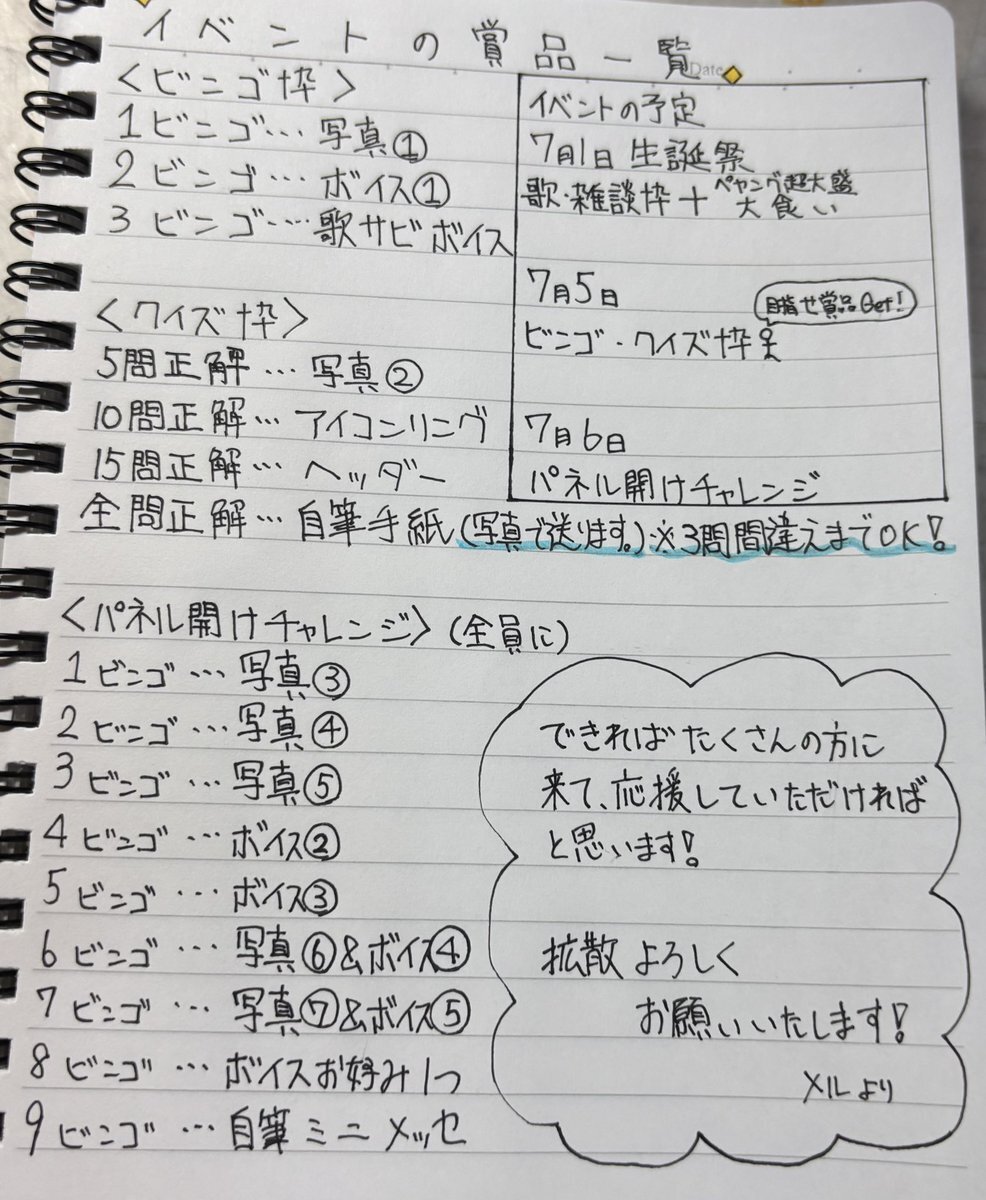 イベントの賞品一覧
Date
<ビンゴ枠>
1ビンゴ…写真①
2ビンゴ…ボイス①
3ビンゴ…歌サビボイス
<クイズ枠>
5問正解…写真②
10問正解…アイコンリング
15問正解…ヘッダー
全問正解…自筆手紙(写真で送ります。)※3問間違えまでOK!
イベントの予定
7月1日 生誕祭
歌・雑談枠+ペヤング超大盛
大食い
7月5日
目指せ賞品Get!
ビンゴ・クイズ枠
7月6日
パネル開けチャレンジ
<パネル開けチャレンジ>(全員に)
1ビンゴ…写真③
2ビンゴ…写真④
3ビンゴ…写真⑤
4ビンゴ…ボイス②
5ビンゴ…ボイス③
6ビンゴ…写真⑥&ボイス④
7ビンゴ…写真⑦&ボイス⑤
8ビンゴ…ボイスお好み1つ
9ビンゴ…自筆ミニメッセ
できればたくさんの方に
来て、応援していただければ
と思います!
拡散よろしく
お願いいたします!
メルより